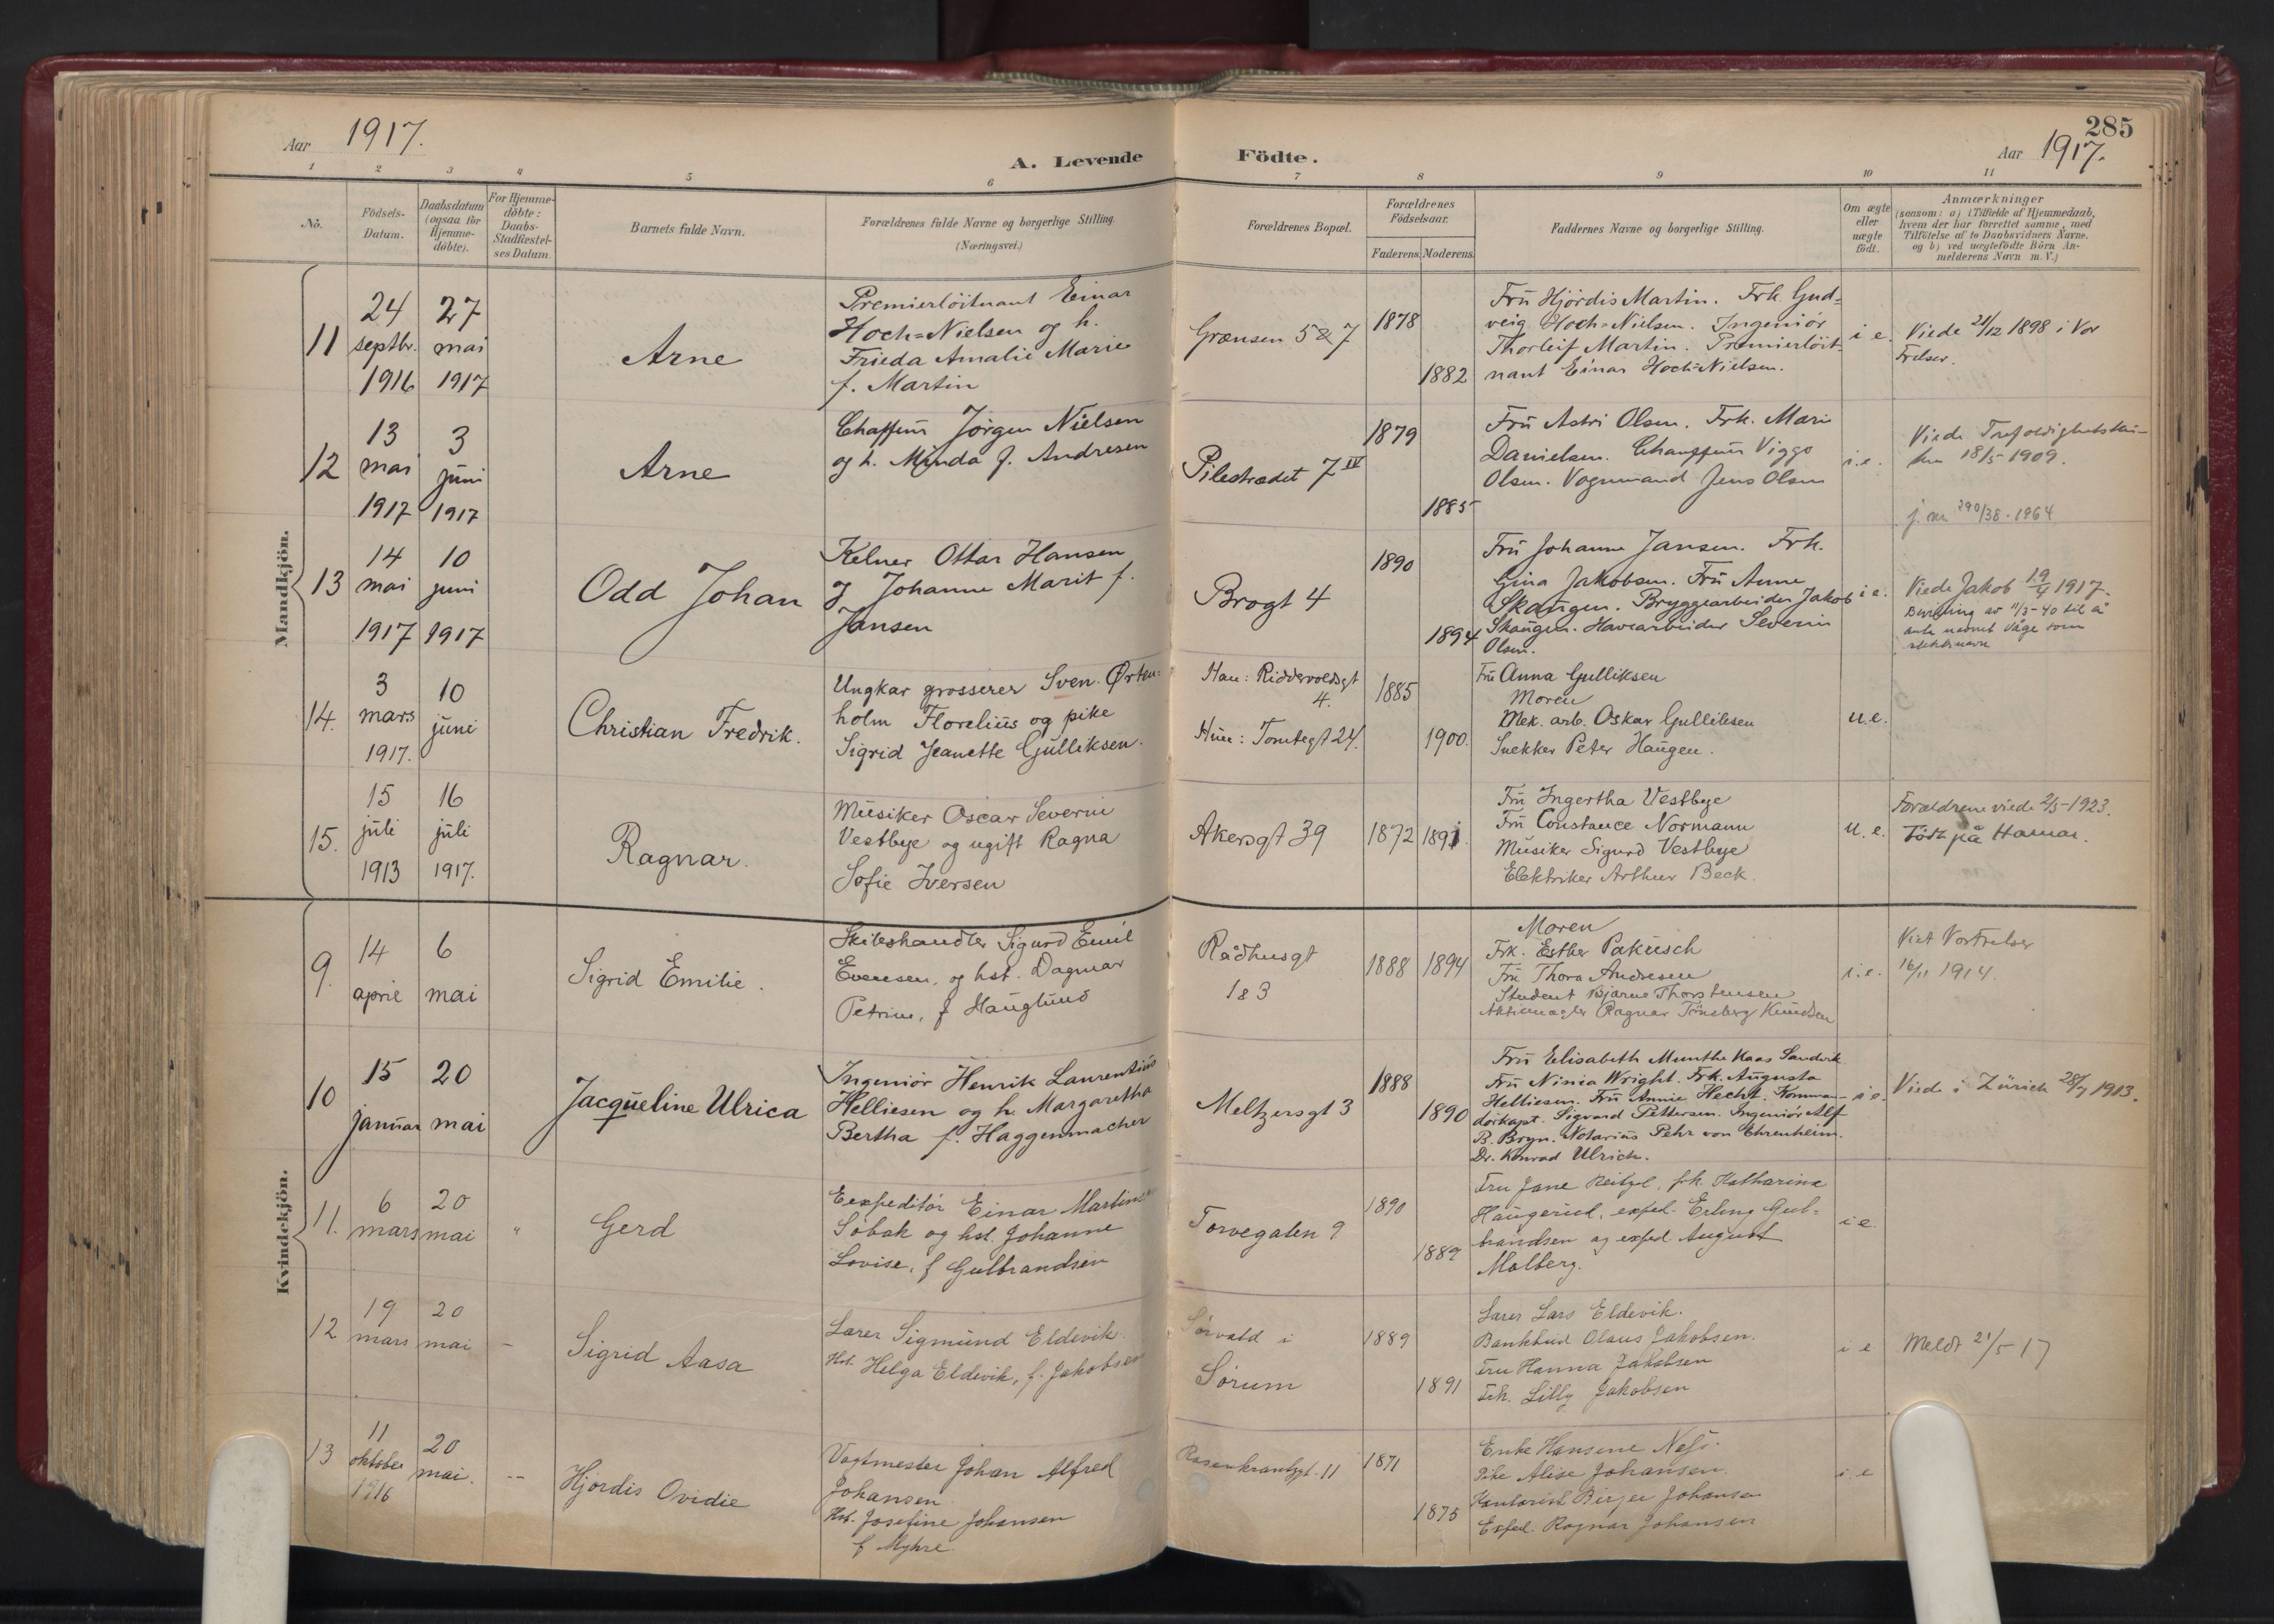 Aar 1917.
A. Levende Födte.
285
Aar 1917.
1 2 3 4 5 6 7 8 9 10 11
No.
Födsels-
Datum.
Daabsdatum
(ogsaa for
Hjemme-
döbte).
For Hjemme-
döbte:
Daabs-
Stadfæstel-
ses Datum.
Barnets fulde Navn.
Forældrenes fulde Navne og borgerlige Stilling.
(Næringsvei.)
Forældrenes Bopæl.
Forældrenes
Födselsaar.
Faderens. Moderens.
Faddernes Navne og borgerlige Stilling.
Om ægte
eller
uægte
födt.
Anmærkninger
(saasom: a) i Tilfælde af Hjemmedaab,
hvem der har forrettet samme, med
Tilföielse af to Daabsvidners Navne,
og b) ved uægtefödte Börn An-
melderens Navn m. V.)
Mandkjön.
11
24
septbr.
1916
27
mai
1917
Arne
Premierlöitnant Einar
Hoch=Nielsen og h.
Frieda Amalie Marie
f. Martin
Grænsen 5 & 7
1878
1882
Fru Hjördis Martin. Frk. Gud=
veig Hoch=Nielsen. Ingeniör
Thorleif Martin. Premierlöit=
nant Einar Hoch=Nielsen.
i e.
Viede 21/12 1898 i Vor
Frelser.
12
13
mai
1917
3
juni
1917
Arne
Chaffeur Jörgen Nielsen
og h. Minda f. Andresen
Pilestrædet 7 IV
1879
1885
Fru Astri Olsen. Frk. Marie
Danielsen. Chauffeur Viggo
Olsen. Vognmand Jens Olsen
i.e.
Viede Trefoldighetskir-
ken 18/5 1909.
j. nr 790/38 - 1964
13
14
mai
1917
10
juni
1917
Odd Johan
Kelner Ottar Hansen
og Johanne Marit f.
Jansen
Brogt 4
1890
1894
Fru Johanne Jansen. Frk.
Gina Jakobsen. Fru Anne
Skaugen. Bryggearbeider Jakob
Skaugen. Havearbeider Severin
Olsen.
i e.
Viede Jakob 19/4 1917.
Bevilling av 11/3-40 til å
anta navnet Våge som
slektsnavn
14.
3
mars
1917.
10
juni
Christian Fredrik.
Ungkar grosserer Sven Örten=
holm Florelius og pike
Sigrid Jeanette Gulliksen.
Han: Riddervoldsgt
4.
Hun: Tomtegt 24.
1885
1900.
Fru Anna Gulliksen
Moren
Mek. arb. Oskar Gulliksen
Snekker Peter Haugen.
u.e.
15.
15
juli
1913
16
juli
1917.
Ragnar.
Musiker Oscar Severin
Vestbye og ugift Ragna
Sofie Iversen
Akersgt 39
1872 1891.
Fru Ingertha Vestbye
Fru Constance Normann
Musiker Sigurd Vestbye
Elektriker Arthur Beck.
u.e.
Forældrene viede 2/5-1923.
Födt på Hamar.
Kvindekjön.
9.
14
april
6
mai
Sigrid Emilie.
Skibshandler Sigurd Emil
Evensen, og hst. Dagmar
Petrine, f Hauglund
Rådhusgt
1 & 3
1888 1894
Moren
Frk. Esther Pakusch
Fru Thora Andresen
Student Bjarne Thorstensen
Aktiemægler Ragnar Tönsberg Knudsen
i.e.
Viet Vor Frelser
16/11 1914.
10
15
januar
20
mai
Jacqueline Ulrica
Ingeniör Henrik Laurentius
Helliesen og h. Margaretha
Bertha f. Haggenmacher
Meltzersgt 3
1888
1890
Fru Elisabeth Munthe Kaas Sandvik
Fru Ninia Wright. Frk. Augusta
Helliesen. Fru Annie Hecht. Komman-
dörkapt. Sigvard Pettersen. Ingeniör Alf
B. Bryn. Notarius Pehr von Ehrenheim.
Dr. Konrad Ulrich.
i e.
Viede i Zürich 28/7 1913.
11.
6
mars
20
mai
"
Gerd
Eexpeditör Einar Martins
Sobak og hst. Johanne
Lovise, f Gulbrandsen
Torvegaten 9
1890
1889
Fru Jane Reitzel, frk. Katharina
Haugerud, exped. Erling Gul=
brandsen og exped August
Malberg.
i e.
12
19
mars
20
mai
–
Sigrid Aasa
Lærer Sigmund Eldevik.
Hst. Helga Eldevik, f. Jakobsen
Sörvald i
Sörum
1889
1891
Lærer Lars Eldevik.
Bankbud Olaus Jakobsen.
Fru Hanna Jakobsen
Frk. Lilly Jakobsen
i e
Meldt 21/5 17
13
11
oktober
1916
20
mai.
--
Hjördis Ovidie
Vagtmester Johan Alfred
Johansen
Hst. Josefine Johansen
f Myhre.
Rosenkrantzgt. 11
1871
1875
Enke Hansine Næss.
Pike Alise Johansen.
Kontorist Birger Johansen
Exped. Ragnar Johansen
i e